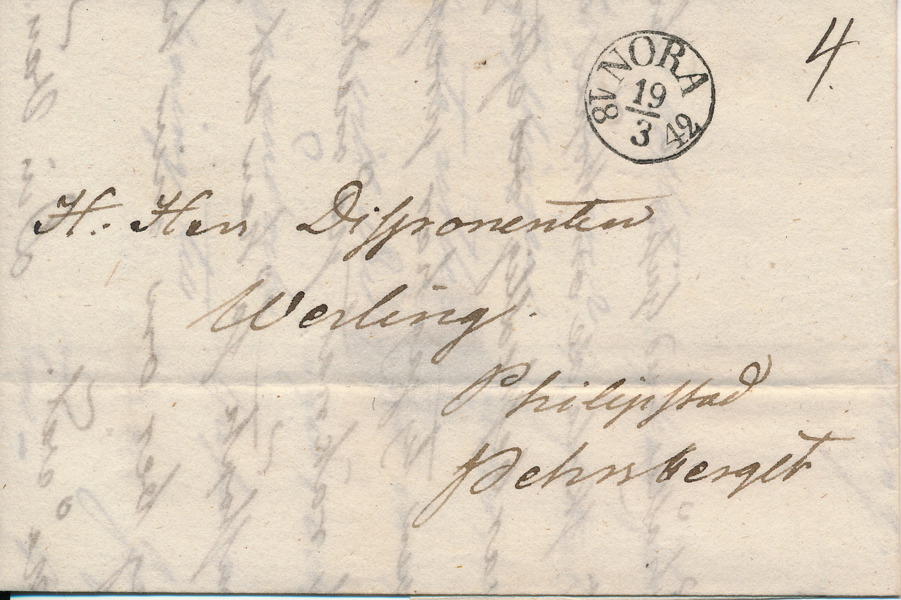 4.
NORA
19
3
18 42
H. Herr Disponenten
Werling.
Philipstad
Pehrsberget